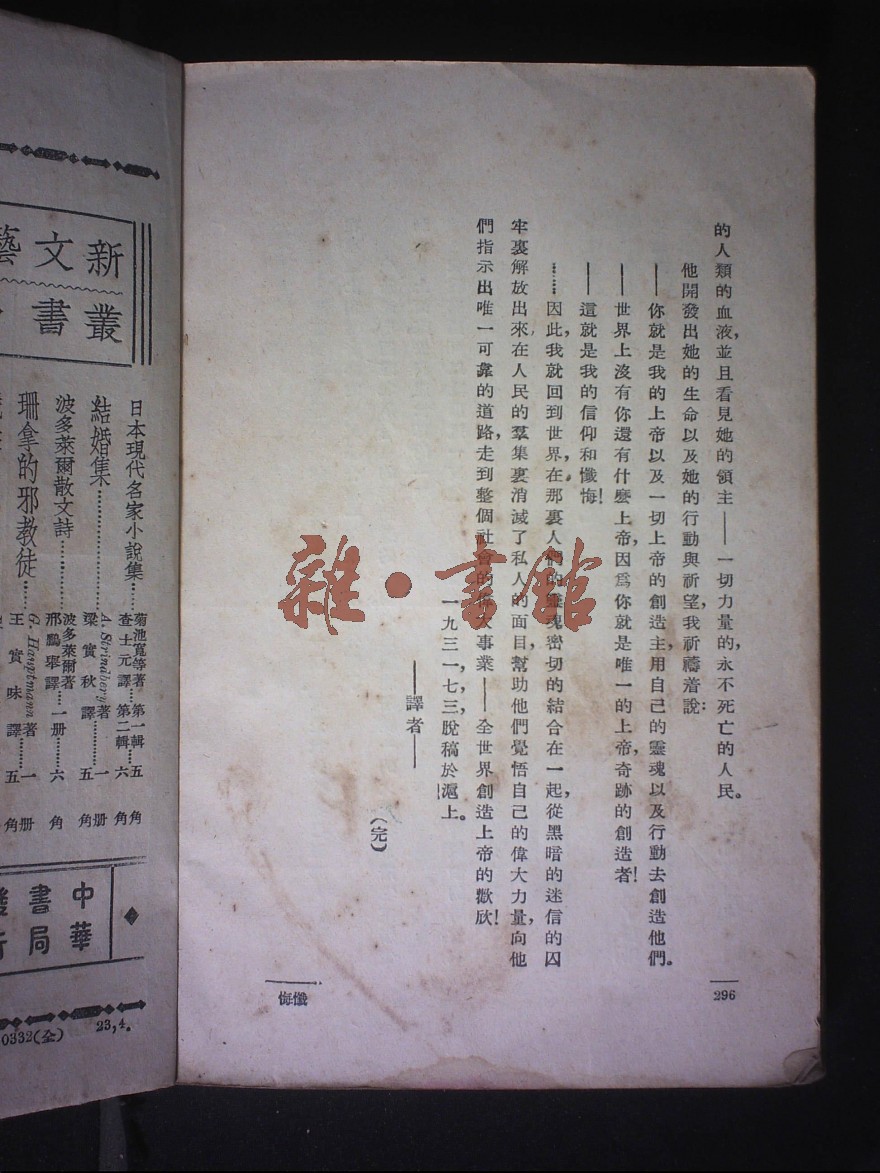 的人類的血液，並且看見她的領主——一切力量的，永不死亡的人民。
他開發出她的生命以及她的行動與祈望，我祈禱着說：
——你就是我的上帝以及一切上帝的創造主，用自己的靈魂以及行動去創造他們。
——世界上沒有你還有什麼上帝，因爲你就是唯一的上帝，奇跡的創造者！
——這就是我的信仰和懺悔！
……因此，我就回到世界，在那裏人們的靈魂密切的結合在一起，從黑暗的迷信的囚
牢裏解放出來，在人民的羣集裏消滅了私人的面目，幫助他們覺悟自己的偉大力量，向他
們指示出唯一可靠的道路，走到整個社會的偉大事業——全世界創造上帝的歡欣！
一九三一，七，三，脫稿於滬上。
——譯者——
（完）
296
懺悔
雜·書館
新文藝
叢書
日本現代名家小說集……菊池寬等著 查士元譯……第一輯 第二輯……五角 六角
結婚集…………A. Strindberg著 梁實秋譯……一册 五角
波多萊爾散文詩……波多萊爾著 邢鵬舉譯……一册……六角
珊拿的邪教徒……G. Hauptmann著 王實味譯……一册 五角
中華
書局
發行
0332(全) 23,4.